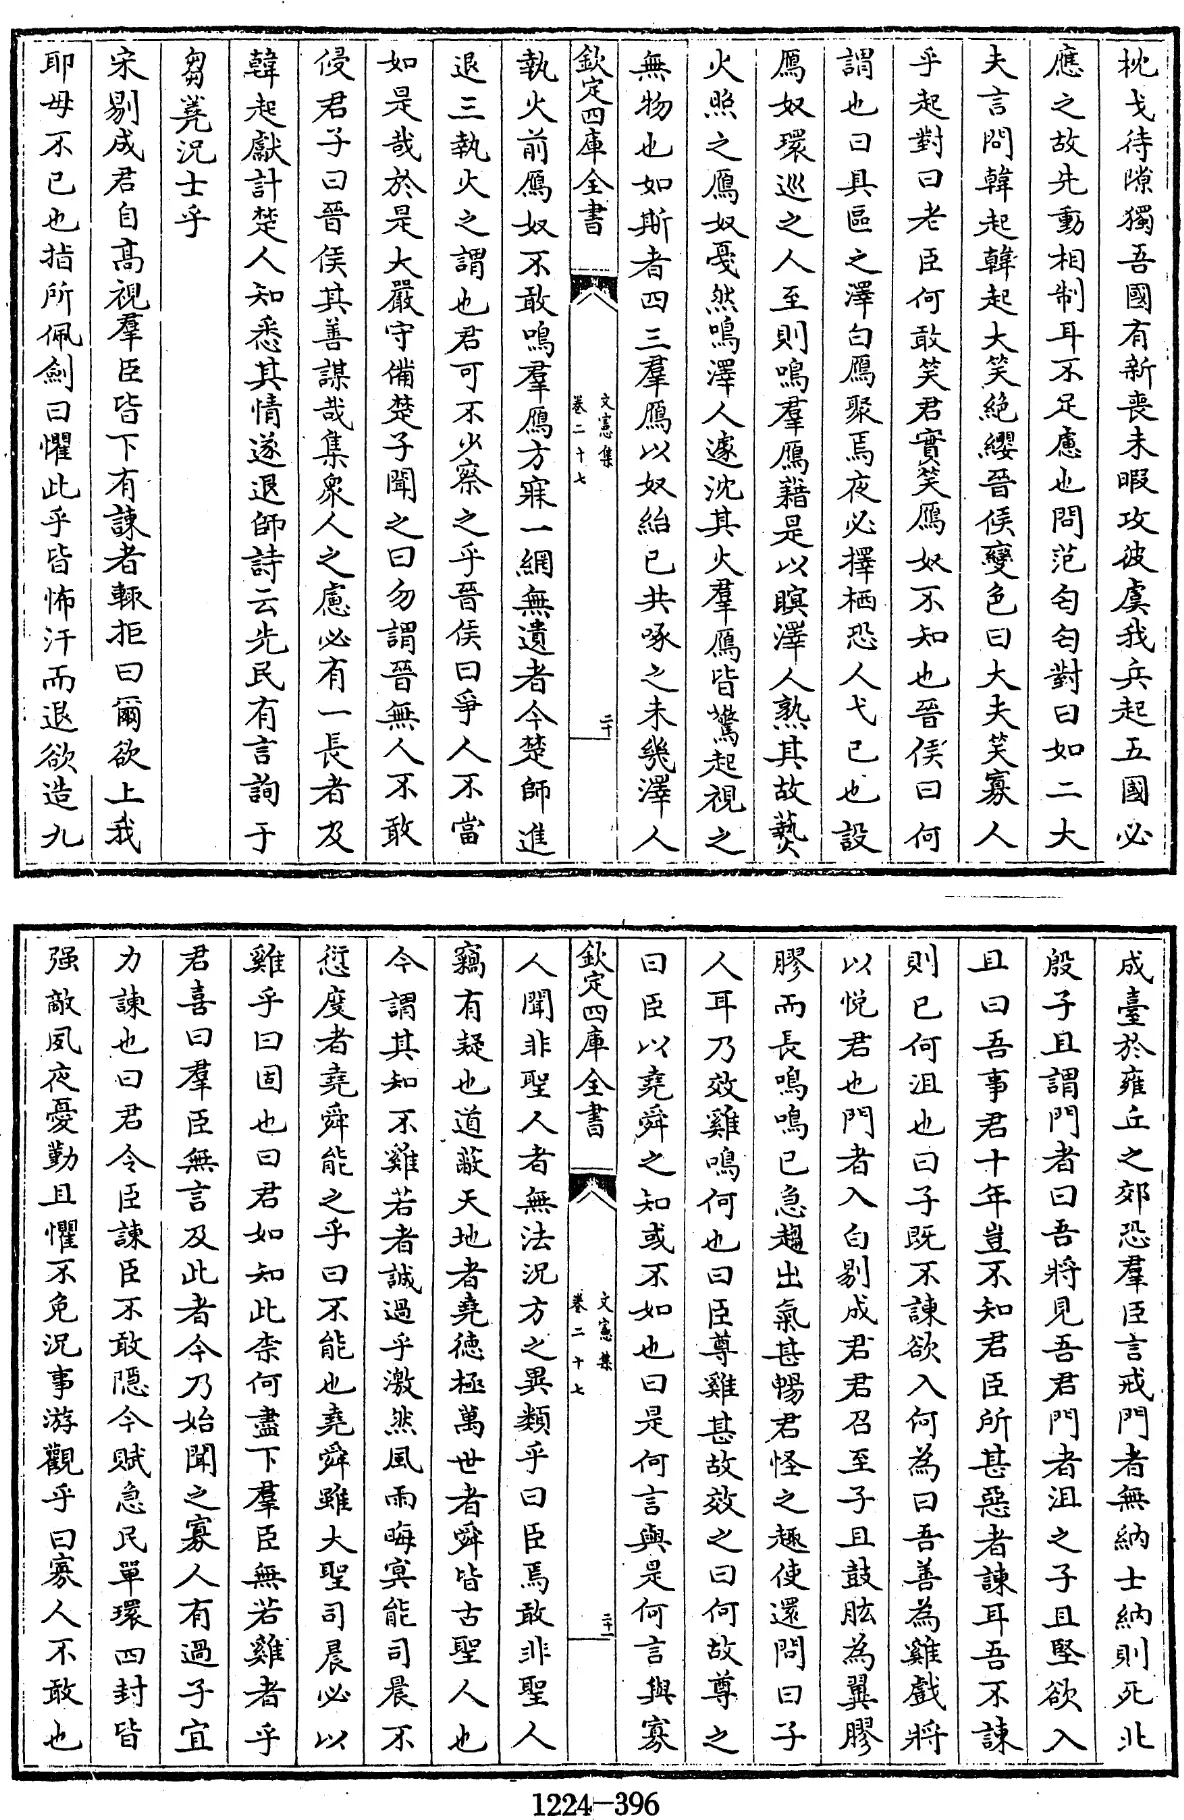 枕戈待隙獨吾國有新喪未暇攻彼虞我兵起五國必
應之故先動相制耳不足慮也問范匄匄對曰如二大
夫言問韓起韓起大笑絶纓晉侯變色曰大夫笑寡人
乎起對曰老臣何敢笑君實笑鴈奴不知也晉侯曰何
謂也曰具區之澤白鴈聚焉夜必擇栖恐人弋已也設
鴈奴環巡之人至則鳴羣鴈藉是以瞑澤人熟其故爇
火照之鴈奴戞然鳴澤人遽沈其火羣鴈皆驚起視之
無物也如斯者四三羣鴈以奴紿已共啄之未幾澤人
欽定四庫全書
文憲集
卷二十七
二十
執火前鴈奴不敢鳴羣鴈方寐一網無遺者今楚師進
退三執火之謂也君可不少察之乎晉侯曰爭人不當
如是哉於是大嚴守備楚子聞之曰勿謂晉無人不敢
侵君子曰晉侯其善謀哉集衆人之慮必有一長者及
韓起獻計楚人知悉其情遂退師詩云先民有言詢于
芻蕘況士乎
宋剔成君自高視羣臣皆下有諫者輒拒曰爾欲上我
耶毋不已也指所佩劍曰懼此乎皆怖汗而退欲造九
成臺於雍丘之郊恐羣臣言戒門者無納士納則死北
殷子且謂門者曰吾將見吾君門者沮之子且堅欲入
且曰吾事君十年豈不知君臣所甚惡者諫耳吾不諫
則已何沮也曰子既不諫欲入何為曰吾善為雞戲將
以悅君也門者入白剔成君君召至子且鼓肱為翼膠
膠而長鳴鳴已急趨出氣甚暢君怪之趣使還問曰子
人耳乃效雞鳴何也曰臣尊雞甚故效之曰何故尊之
曰臣以堯舜之知或不如也曰是何言與是何言與寡
欽定四庫全書
文憲集
卷二十七
二十一
人聞非聖人者無法況方之異類乎曰臣焉敢非聖人
竊有疑也道蔽天地者堯德極萬世者舜皆古聖人也
今謂其知不雞若者誠過乎激然風雨晦冥能司晨不
愆度者堯舜能之乎曰不能也堯舜雖大聖司晨必以
雞乎曰固也曰君如知此柰何盡下羣臣無若雞者乎
君喜曰羣臣無言及此者今乃始聞之寡人有過子宜
力諫也曰君令臣諫臣不敢隱今賦急民單環四封皆
强敵夙夜憂勤且懼不免況事游觀乎曰寡人不敢也
1224-396